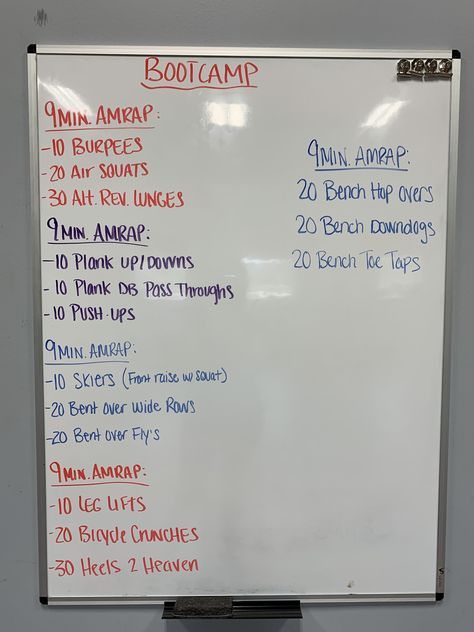 BOOTCAMP
9MIN. AMRAP:
-10 BURPEES
-20 AIR SQUATS
-30 Alt. REV. LUNGES
9MIN. AMRAP:
-10 Plank UP/DOWNS
-10 Plank DB PASS Throughs
-10 PUSH-UPS
9MIN. AMRAP:
-10 SKIERS (Front raise w/ squat)
-20 Bent over Wide Rows
-20 Bent over Fly's
9MIN. AMRAP:
-10 LEG LIFTS
-20 Bicycle CRUNCHES
-30 Heels 2 Heaven
9MIN. AMRAP:
20 Bench Hop overs
20 Bench Downdogs
20 Bench Toe Taps